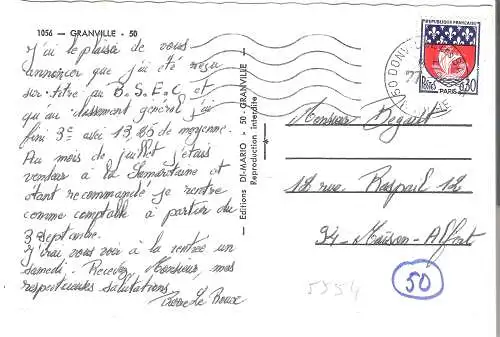 1056 — GRANVILLE - 50
J'ai le plaisir de vous
annoncer que j'ai été reçu
sur titre au B.S.E.C et
qu'au classement général j'ai
fini 3e avec 13,85 de moyenne.
Au mois de juillet j'étais
vendeur à la Samaritaine et
étant recommandé je rentre
comme comptable à partir du
3 septembre.
J'irai vous voir à la rentrée un
samedi. Recevez, Monsieur, mes
respectueuses salutations.
Pierre Le Boux
— Editions DI-MARIO - 50 - GRANVILLE —
Reproduction interdite
REPUBLIQUE FRANÇAISE
POSTES
0,30
PARIS
50 DONVILLE
Monsieur Regard
18 rue Raspail 18
94 - Maison - Alfort
5554
50